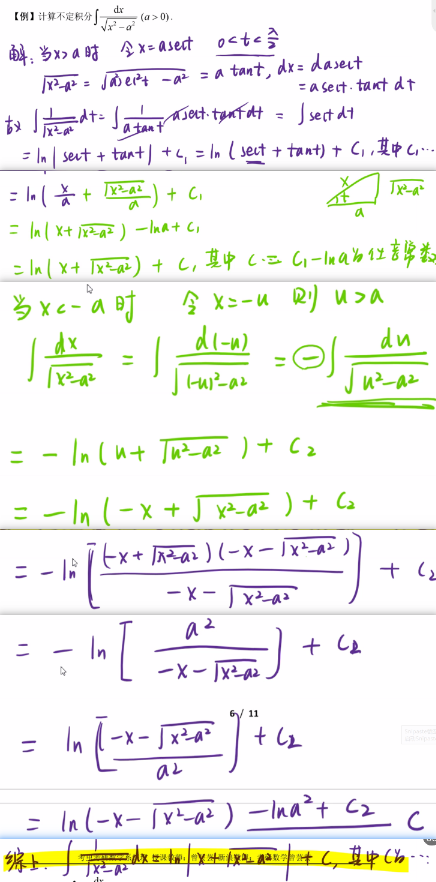 【例】计算不定积分∫dx/√(x²-a²) (a>0).
解:当x>a时 令x=asect 0<t<π/2
√(x²-a²) = √(a²sec²t-a²) = a tant, dx=dasect
=asect·tant dt
故∫1/√(x²-a²) dt=∫1/(a tant) asect·tant dt = ∫sect dt
=ln|sect+tant|+c₁=ln(sect+tant)+C₁,其中C₁…
=ln(x/a + √(x²-a²)/a)+C₁
x t a √(x²-a²)
=ln(x+√(x²-a²))-lna+C₁
=ln(x+√(x²-a²))+C,其中C=C₁-lna为任意常数
当x<-a时 令x=-u 则u>a
∫dx/√(x²-a²) = ∫d(-u)/√((-u)²-a²) = -∫du/√(u²-a²)
=-ln(u+√(u²-a²))+C₂
=-ln(-x+√(x²-a²))+C₂
=-ln[(-x+√(x²-a²))(-x-√(x²-a²))/(-x-√(x²-a²))]+C₂
=-ln[a²/(-x-√(x²-a²))]+C₂
6 / 11
=ln[(-x-√(x²-a²))/a²]+C₂
=ln(-x-√(x²-a²))-lna²+C₂ C
综上:∫1/√(x²-a²) dx=ln|x+√(x²-a²)|+C,其中C为…
dx